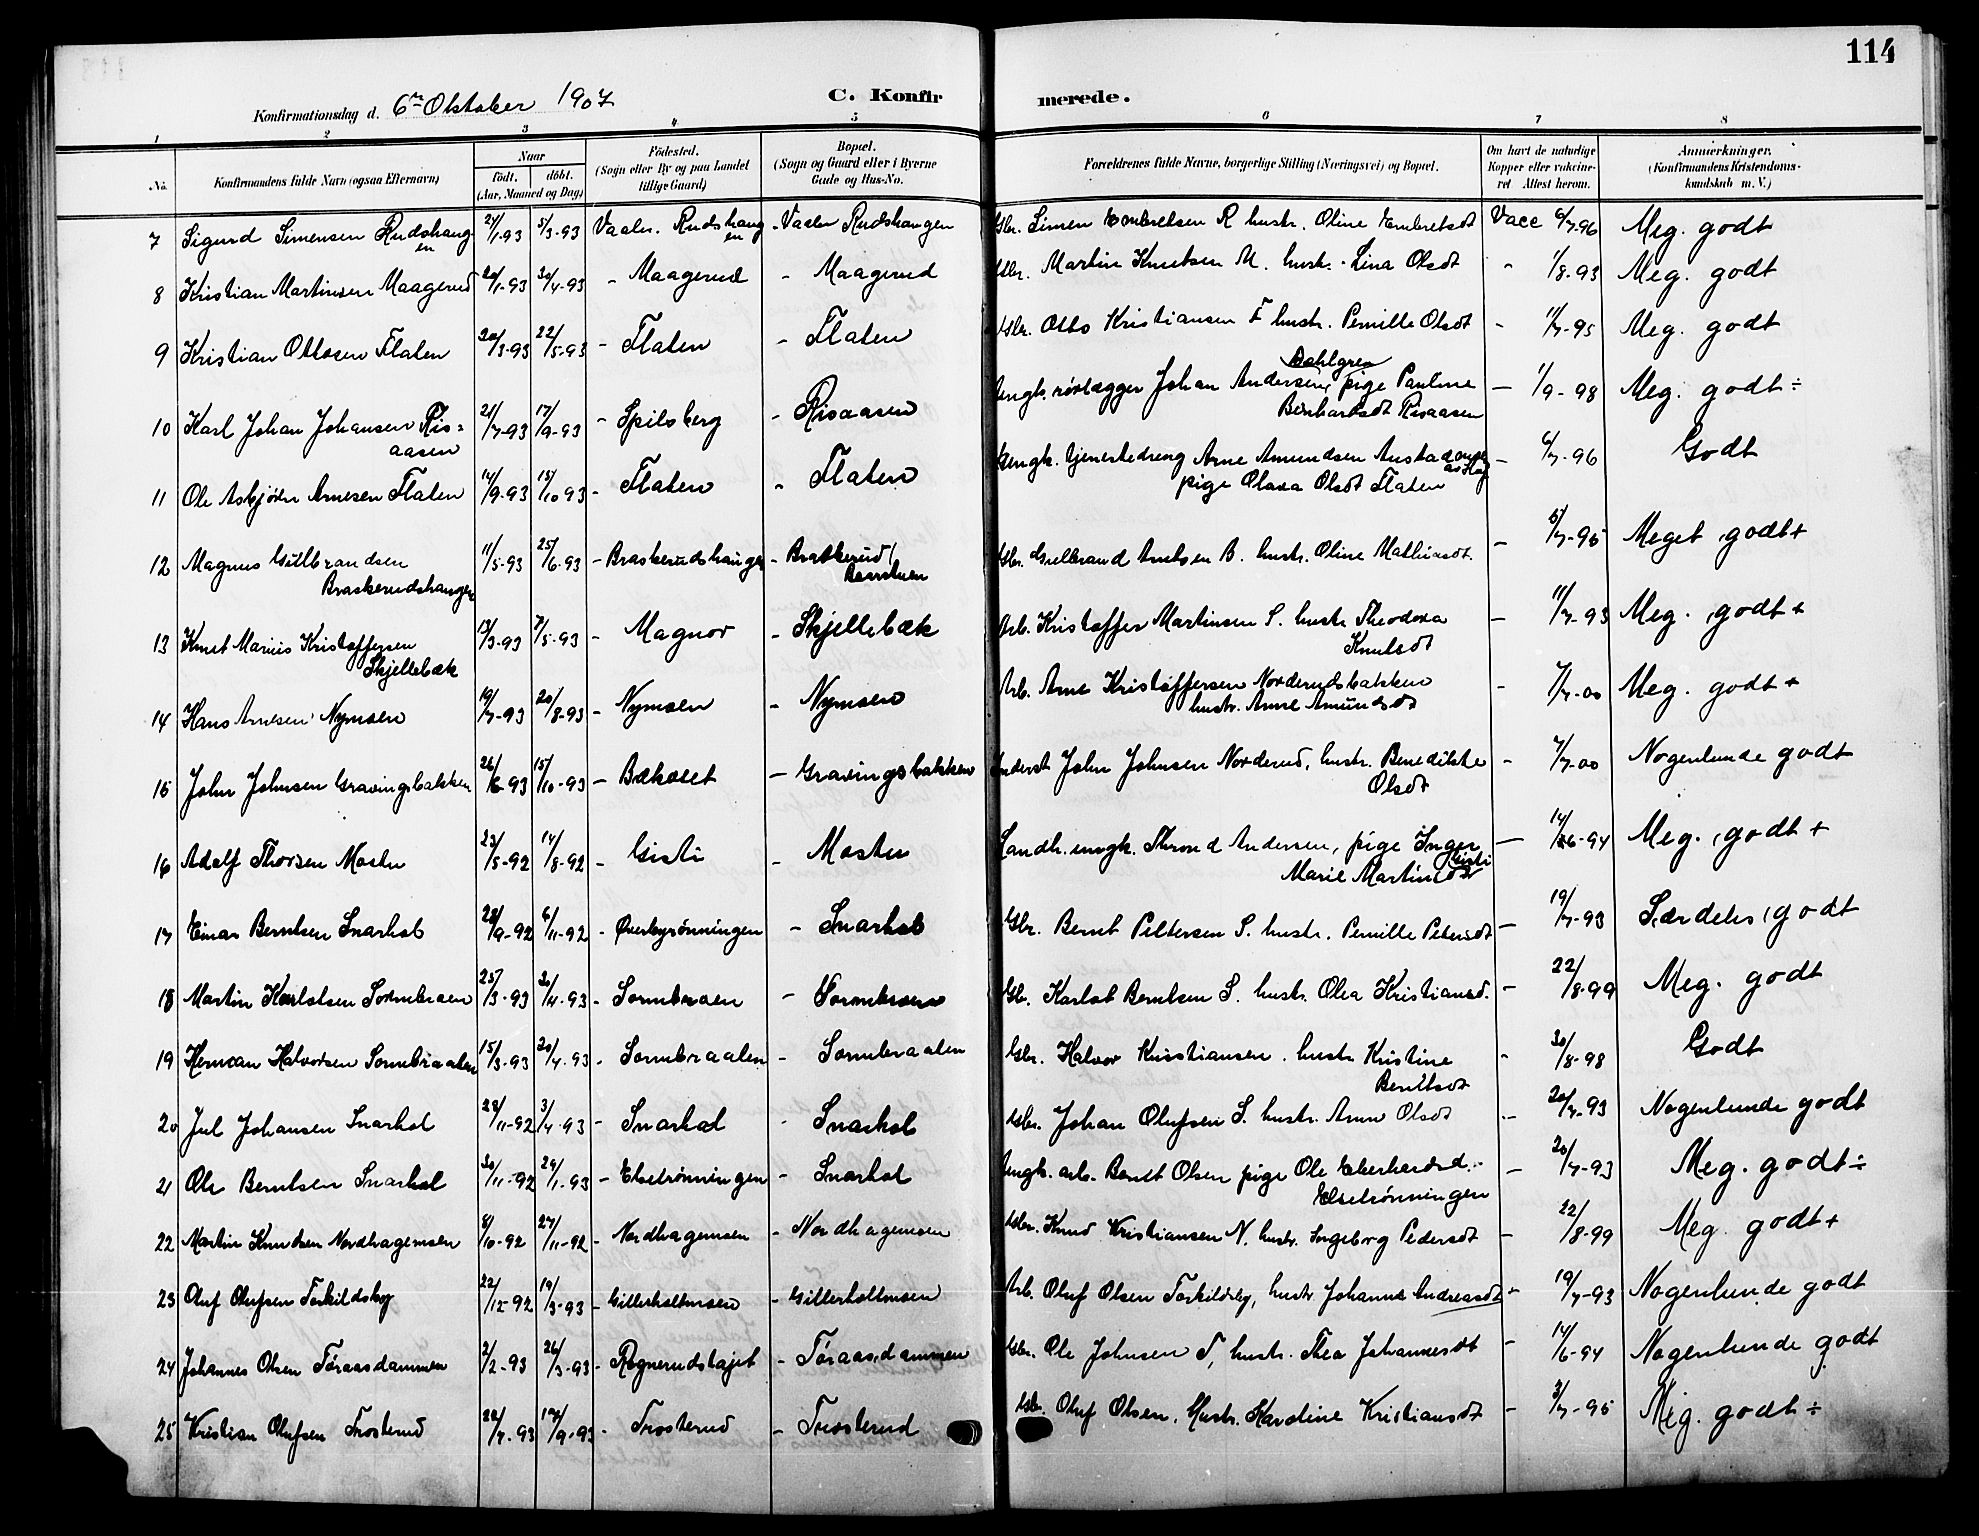 114
Konfirmationsdag d. 6te Oktober 1907 C. Konfirmerede.
1 2 3 4 5 6 7 8
No. Konfirmandens fulde Navn (ogsaa Efternavn) Naar født. døbt. (Aar, Maaned og Dag) Fødested. (Sogn eller By og paa Landet tillige Gaard) Bopæl. (Sogn og Gaard eller i Byerne Gade og Hus-No. Forældrenes fulde Navne, borgerlige Stilling (Næringsvei) og Bopæl. Om havt de naturlige Kopper eller vaccineret. Attest herom. Anmerkninger. (Konfirmandens Kristendomskundskab m. V.)
7 Sigurd Simensen Rudshangen 24/1-93 5/3-93 Vaaler. Rudshangen - Vaaler Rudshangen Gbr. Simen Embretsen R hustr. Oline Embretsdt Vacc 6/7-96 Meg. godt
8 Kristian Martinsen Maagerud 20/1-93 30/4-93 - Maagerud - Maagerud Gbr. Martin Knutsen M. hustr. Lina Olsdt - 1/8-93 Meg. godt
9 Kristian Ottosen Flaten 20/3-93 22/5-93 - Flaten - Flaten Gbr. Otto Kristiansen F hustr. Pernille Olsdt - 11/7-95 Meg. godt
10 Karl Johan Johansen Risaasen 21/7-93 17/9-93 - Spilsberg - Risaasen Ungk. rørlægger Johan Andersen Dahlgren, pige Pauline Bernhardsdt Risaasen - 1/9-98 Meg. godt ÷
11 Ole Asbjørn Arnesen Flaten 14/9-93 15/10 93 - Flaten - Flaten Ungk. tjenestedreng Arne Amundsen Austad pige Olava Olsdt Flaten - 6/7-96 Godt
12 Magnus Gulbrandsen Braskerudshangen 11/5-93 25/6-93 - Braskerudshangen - Braskerud/ Gbr. Gulbrand Arnesen B. hustr. Oline Mathiasdt. - 5/7-95 Meget godt +
13 Knut Marius Kristoffersen Skjellebæk 13/3-93 7/5-93 - Magnor - Skjellebæk Arb. Kristoffer Martinsen S. hustr Theodora Knutsdt - 11/7-93 Meg. godt +
14 Hans Arnesen Nymoen 19/7-93 20/8-93 - Nymoen - Nymoen Arb. Arne Kristoffersen Norderudsbakken hustr. Anne Amundsdt - 7/7-00 Meg. godt +
15 John Johnsen Gravingsbakken 26/6-93 15/10-93 - Bækvset - Gravingsbakken Inderst John Johnsen Norderud, hustr. Benedikte Olsdt - 7/7-00 Nogenlunde godt
16 Adolf Thorsen Moste 23/5-92 14/8-92 - Gisti - Mosten Landh. ungk. Thrond Andersen, pige Inger Marie Martinsdt Gisti - 14/6-94 Meg. godt +
17 Einar Berntsen Snarhol 28/9-92 6/11-92 - Øverbyrønningen - Snarhol Gbr. Bernt Pettersen S. hustr. Pernille Petersdt - 19/7-93 Særdeles godt
18 Martin Karlotsen Sormbraaen 25/3-93 30/4-93 - Sormbraaen - Sormbraaen Gbr. Karlot Berntsen S. hustr. Olea Kristiansd. - 22/8-99 Meg. godt
19 Herman Halvorsen Sormbraaten 15/3-93 20/4-93 - Sormbraaten - Sormbraaten Gbr. Halvor Kristiansen. hustr. Kristine Berntsdt - 30/8-98 Godt
20 Jul Johansen Snarhol 28/11-92 3/4-93 - Snarhol - Snarhol Gbr. Johan Olufsen S. hustr. Anne Olsdt - 20/7-93 Nogenlunde godt
21 Ole Berntsen Snarhol 30/11-92 29/1-93 - Elsetrønningen - Snarhol Ungk. arb. Berndt Olsen pige Ole Eberhardsd. Elsetrønningen - 20/7-93 Meg. godt ÷
22 Martin Knudsen Nordhagemoen 8/10-92 27/11-92 - Nordhagemoen - Nordhagemoen Gbr. Knud Kristiansen N. hustr. Ingeborg Pedersdt - 22/8-99 Meg. godt +
23 Oluf Olufsen Torkildsby 22/12-92 19/3-93 - Gillerholtmoen - Gillerholtmoen Arb. Oluf Olsen Torkildsby, hustr Johanne Andreasdt - 19/7-93 Nogenlunde godt
24 Johannes Olsen Tøraasdammen 2/2-93 26/3-93 - Rognerudstajet - Tøraasdammen Gbr. Ole Johnsen T, hustr. Thea Johannesdt - 14/6-94 Nogenlunde godt
25 Kristian Olufsen Trosterud 28/7-93 17/9-93 - Trosterud - Trosterud Gbr. Oluf Olsen. Hustr. Karoline Kristiansdt - 3/7-95 Meg. godt ÷